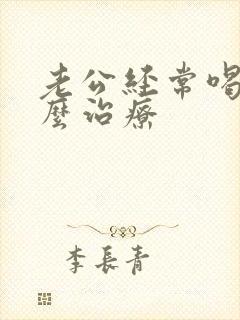 老公經常喝
麼治療
李長青